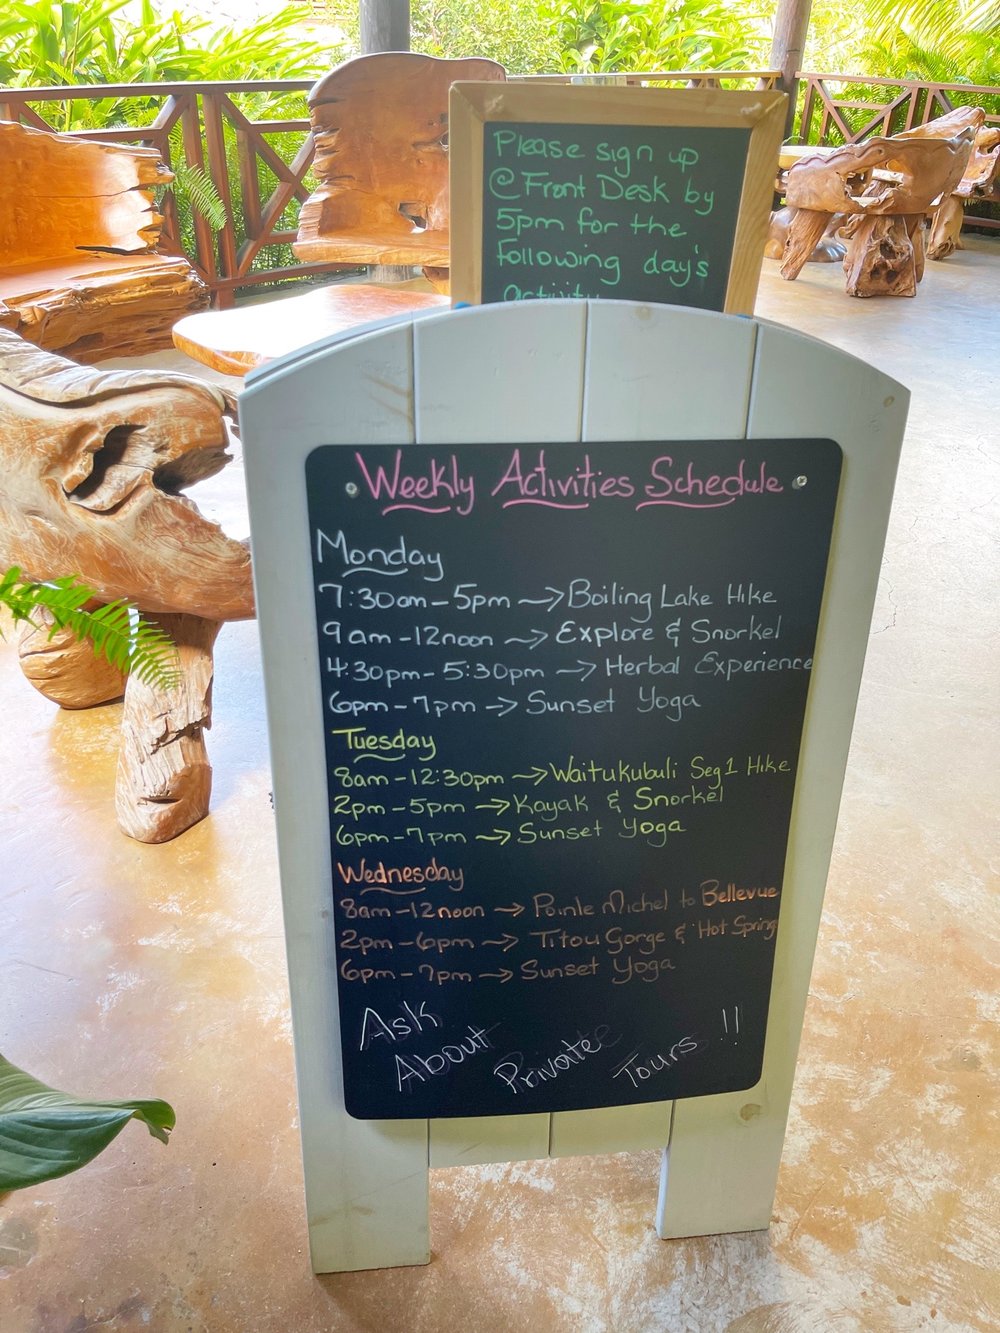 Please sign up
@ Front Desk by
5pm for the
following day's
activity
Weekly Activities Schedule
Monday
7:30am - 5pm → Boiling Lake Hike
9am - 12noon → Explore & Snorkel
4:30pm - 5:30pm → Herbal Experience
6pm - 7pm → Sunset Yoga
Tuesday
8am - 12:30pm → Waitukubuli Seg 1 Hike
2pm - 5pm → Kayak & Snorkel
6pm - 7pm → Sunset Yoga
Wednesday
8am - 12noon → Pointe Michel to Bellevue
2pm - 6pm → Titou Gorge & Hot Spring
6pm - 7pm → Sunset Yoga
Ask About Private Tours !!